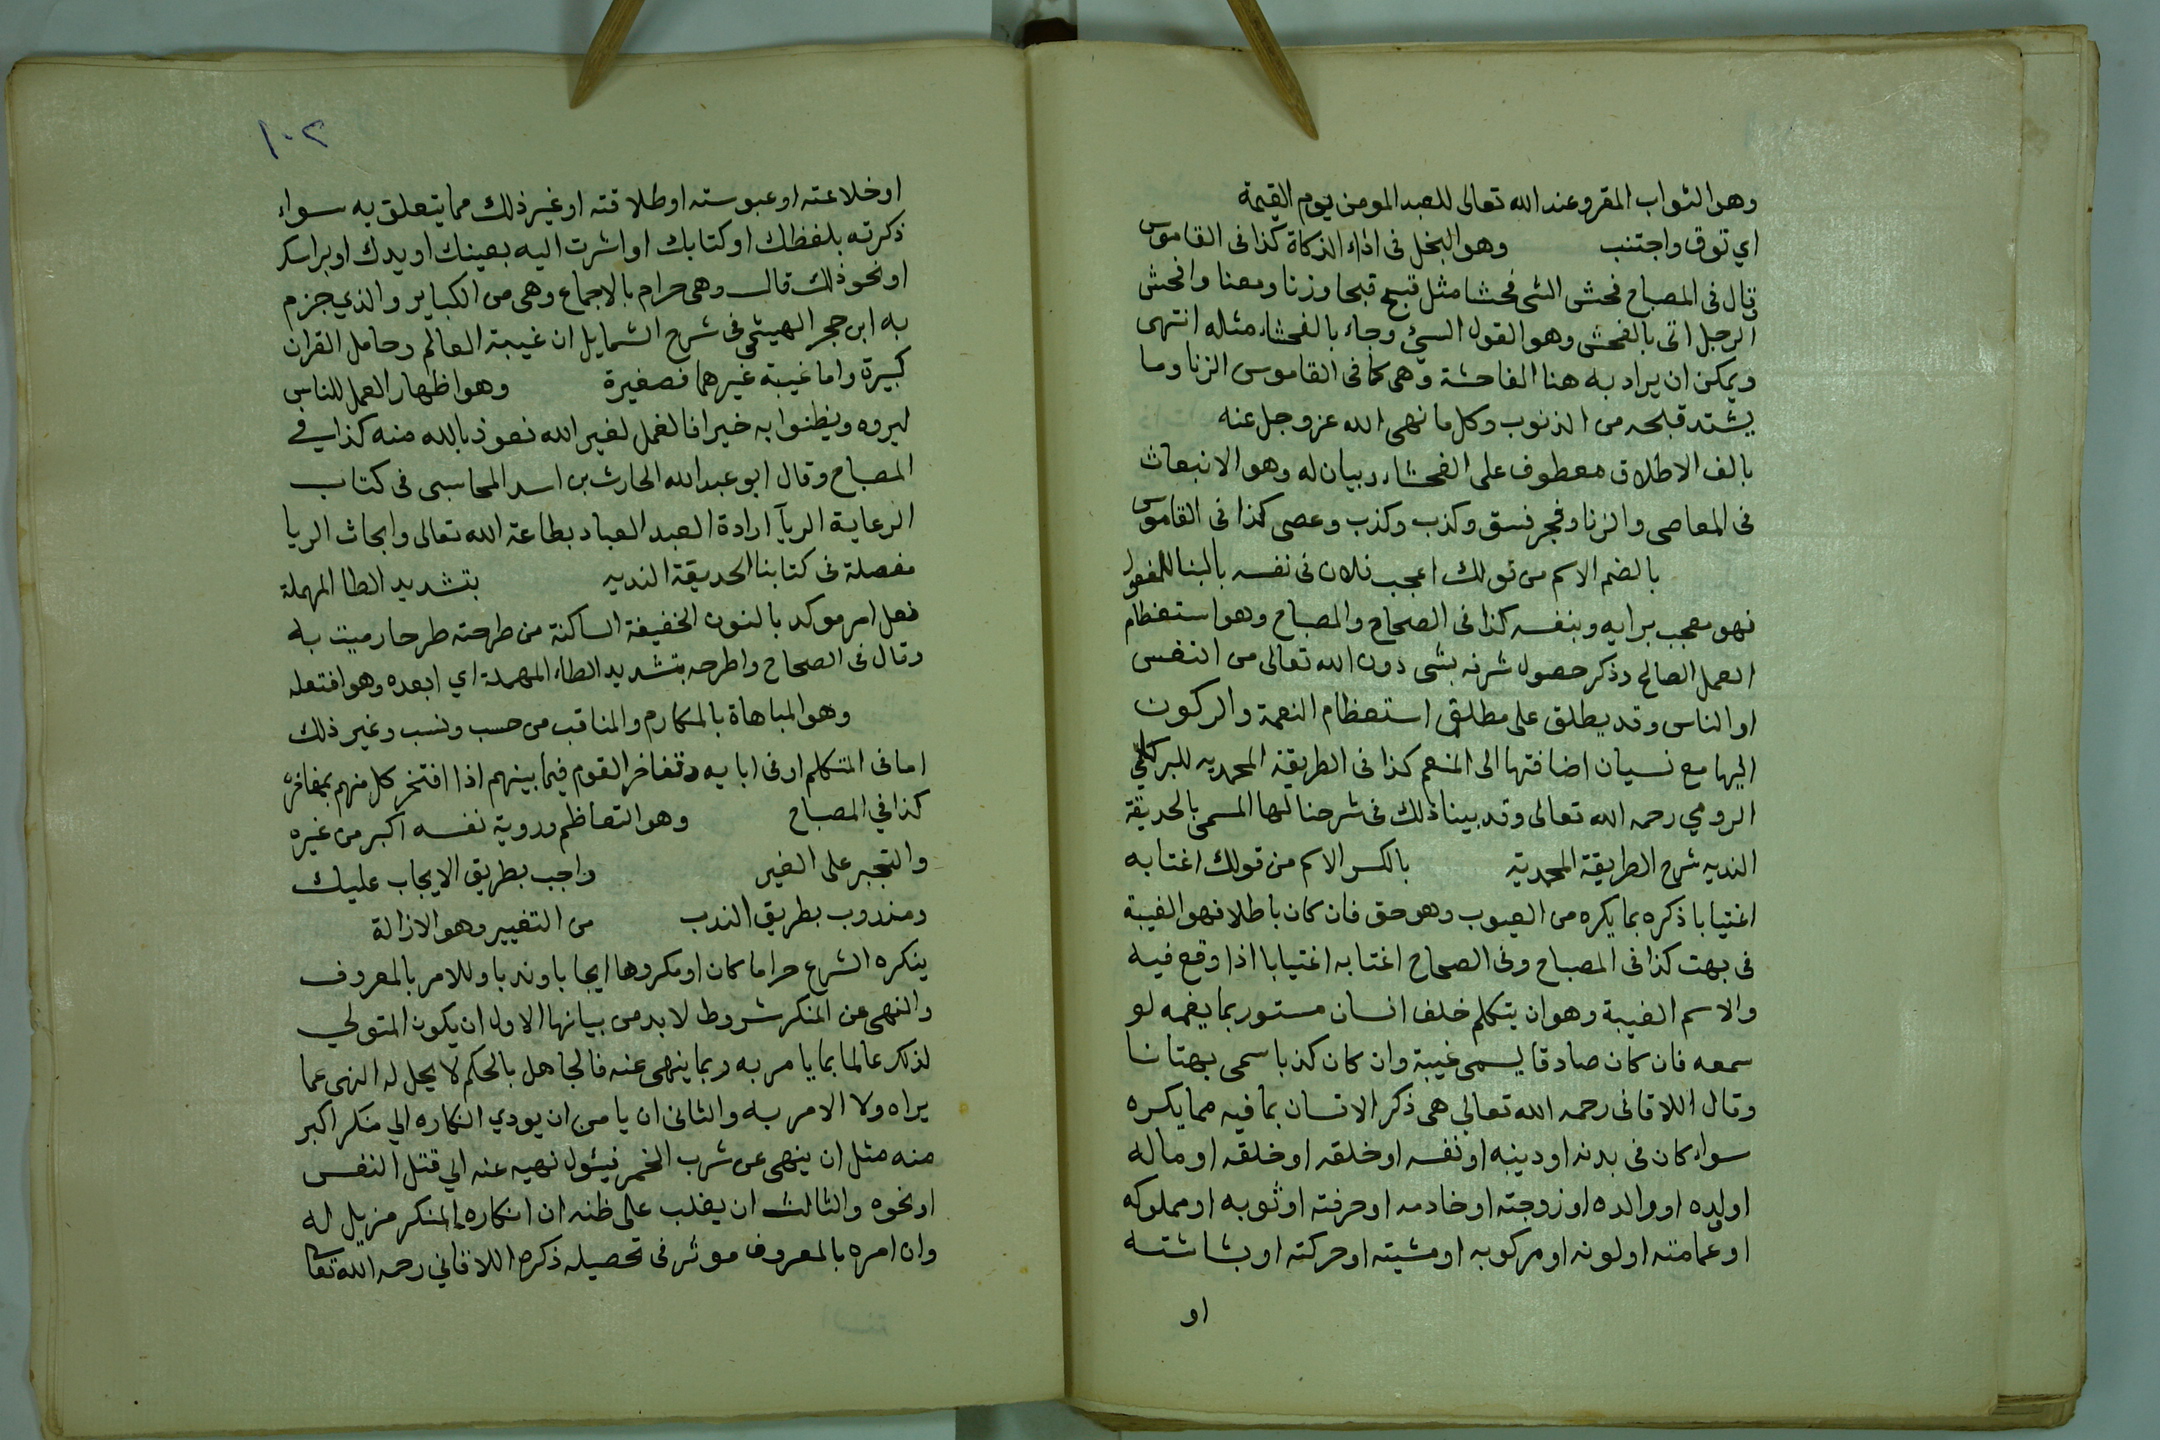 وهو الثواب المقرو عند الله تعالى للعبد المومن يوم القيمة
اي توق واجتنب وهو البخل فى اداء الزكاة كذا فى القاموس
قال فى المصباح فحش الشى فحشا مثل قبح قبحا وزنا ومعنا وافحش
الرجل اتى بالفحش وهو القول السيئ وجاء بالفحشاء مثله انتهى
ويمكن ان يراد به هنا الفاحشة وهى كما فى القاموس الزنا وما
يشتد قبحه من الذنوب وكل ما نهى الله عز وجل عنه
بالف الاطلاق معطوف على الفحشاء وبيان له وهو الانبعاث
فى المعاصى والزنا وفجر فسق وكذب وكذب وعصى كذا فى القاموس
بالضم الاسم من قولك اعجب فلان فى نفسه بالبنا للمفعول
فهو معجب برايه وبنفسه كذا فى الصحاح والمصباح وهو استعظام
العمل الصالح وذكر حصول شرفه بشى دون الله تعالى من النفس
او الناس وقد يطلق على مطلق استعظام النعمة والركون
اليها مع نسيان اضافتها الى المنعم كذا فى الطريقة المحمديه للبركلي
الرومي رحمه الله تعالى وقد بينا ذلك فى شرحنا لها المسمى بالحديقة
النديه شرح الطريقة المحمدية بالكسر الاسم من قولك اغتابه
اغتيابا ذكره بما يكره من العيوب وهو حق فان كان باطلا فهو الغيبة
فى بهت كذا فى المصباح وفى الصحاح اغتابه اغتيابا اذا وقع فيه
والاسم الغيبة وهو ان يتكلم خلف انسان مستور بما يغمه لو
سمعه فان كان صادقا يسمى غيبة وان كان كذبا سمى بهتانا
وقال اللاقانى رحمه الله تعالى هى ذكر الانسان بما فيه مما يكره
سواء كان فى بدنه او دينه او نفسه او خلقه او خلقه او ماله
او ولده او والده او زوجته او خادمه او حرفته او ثوبه او مملوكه
او عمامته او لونه او مركوبه او مشيته او حركته او بشاشته
او
١٠٢
او خلاعته او عبوسته او طلاقته او غير ذلك مما يتعلق به سواء
ذكرته بلفظك او كتابك او اشرت اليه بعينك او يدك او براسك
او نحو ذلك قال وهى حرام بالاجماع وهى من الكباير والذي جزم
به ابن حجر الهيثمى فى شرح الشمايل ان غيبة العالم وحامل القران
كبيرة واما غيبة غيرهما فصغيرة وهو اظهار العمل للناس
ليروه ويظنوا به خيرا فالعمل لغير الله نعوذ بالله منه كذا في
المصباح وقال ابو عبد الله الحارث بن اسد المحاسبى فى كتاب
الرعاية الريآ ارادة العبد العباد بطاعة الله تعالى وابحاث الريا
مفصلة فى كتابنا الحديقة النديه بتشديد الطا المهملة
فعل امر موكد بالنون الخفيفة الساكنة من طرحته طرحا رميت به
وقال فى الصحاح واطرحه بتشديد الطاء المهملة اي ابعده وهو افتعله
وهو المباهاة بالمكارم والمناقب من حسب ونسب وغير ذلك
اما فى المتكلم او فى ابايه وتفاخر القوم فيما بينهم اذا افتخر كل منهم بمفاخره
كذا في المصباح وهو التعاظم وروية نفسه اكبر من غيره
والتجبر على الغير واجب بطريق الايجاب عليك
ومندوب بطريق الندب من التغيير وهو الازالة
ينكره الشرع حراما كان او مكروها ايجابا وندبا وللامر بالمعروف
والنهى عن المنكر شروط لابد من بيانها الاول ان يكون المتولي
لذلك عالما بما يامر به وبما ينهى عنه فالجاهل بالحكم لا يحل له النهى عما
يراه ولا الامر به والثانى ان يامن ان يودي انكاره الي منكر اكبر
منه مثل ان ينهى عن شرب الخمر فيئول نهيه عنه الي قتل النفس
او نحوه والثالث ان يغلب على ظنه ان انكاره المنكر مزيل له
وان امره بالمعروف موثر فى تحصيله ذكره اللاقاني رحمه الله تعالى